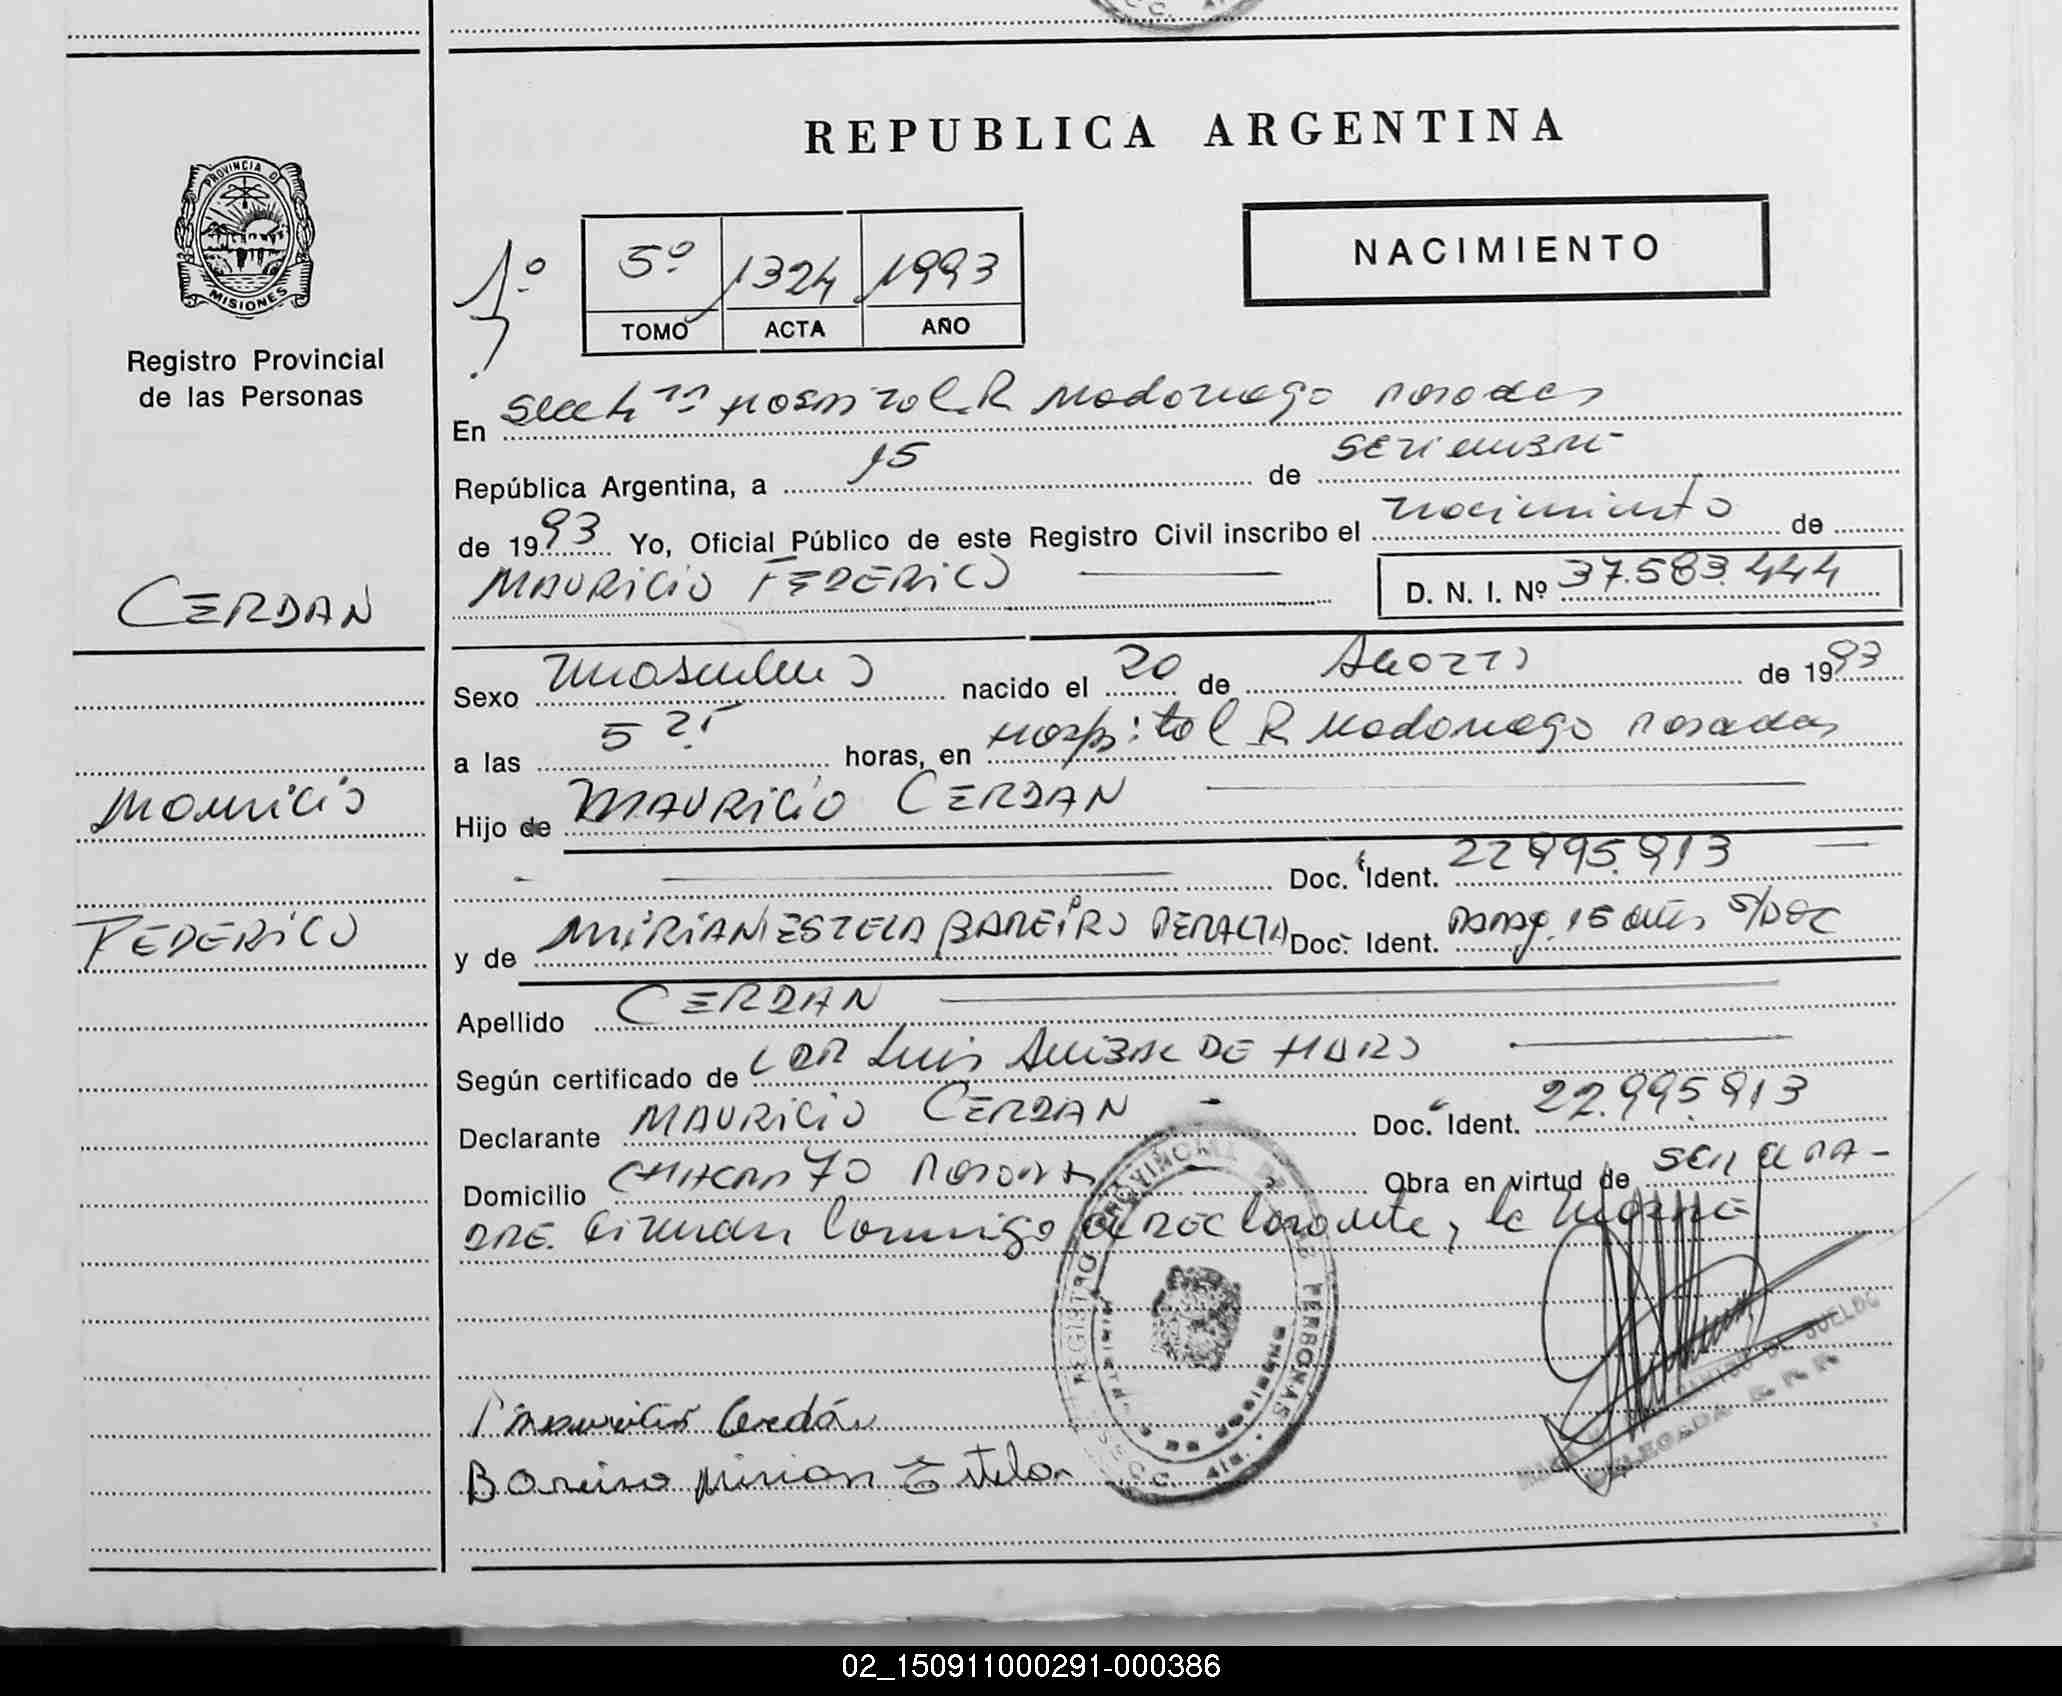 REPUBLICA ARGENTINA
PROVINCIA D
MISIONES
Registro Provincial
de las Personas
1º
5º 1324 1993
TOMO ACTA AÑO
NACIMIENTO
En Hospital R Madariaga Posadas
República Argentina, a 15 de Setiembre
de 1993 Yo, Oficial Público de este Registro Civil inscribo el nacimiento de
MAURICIO FEDERICO D. N. I. Nº 37.583.444
CERDAN
Sexo masculino nacido el 20 de Agosto de 1993
a las 5 horas, en Hospital R Madariaga Posadas
Mauricio
Hijo de MAURICIO CERDAN
Doc. Ident. 22.995.913
FEDERICO
y de MIRIAN ESTELA BAREIRO PERALTA Doc. Ident. 15 años s/DOC
Apellido CERDAN
Según certificado de Luis Anibal DE HARO
Declarante MAURICIO CERDAN Doc. Ident. 22.995.913
Domicilio 70 Posadas Obra en virtud de ser el PA-
DRE. Firman conmigo el declarante, la madre
REGISTRO PROVINCIAL DE LAS PERSONAS
Mauricio Cerdán
Bareiro Mirian Estela
DELEGADA
02_150911000291-000386